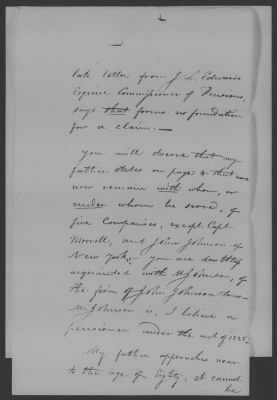 late letter from J. L. Edwards
Esquire Commissioner of Pensions,
says that forms no foundation
for a claim.—
you will observe that my
father states on page 4 that none
now remain with whom, or
under whom he served, of
five Companies, except Capt
and John Johnson of
New York,— you are doubtless
acquainted with Mr Johnson, of
the firm of John Johnson & sons
Mr Johnson is, I believe a
pensioner under the act of
My father approaches near
to the age of Eighty, it cannot
be